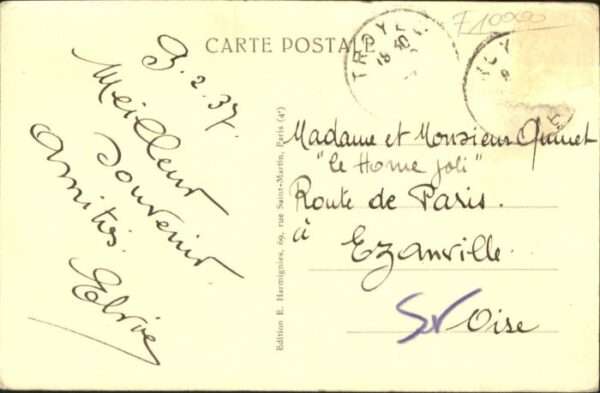 CARTE POSTALE
710000
TROY
18
9.2.37.
Meilleur
souvenir
Amitiés.
Edition E. Harmignies, 69, rue Saint-Martin, Paris (4e)
Madame et Monsieur Quinet
"le Home joli"
Route de Paris.
à
Ezanville.
S/ Oise